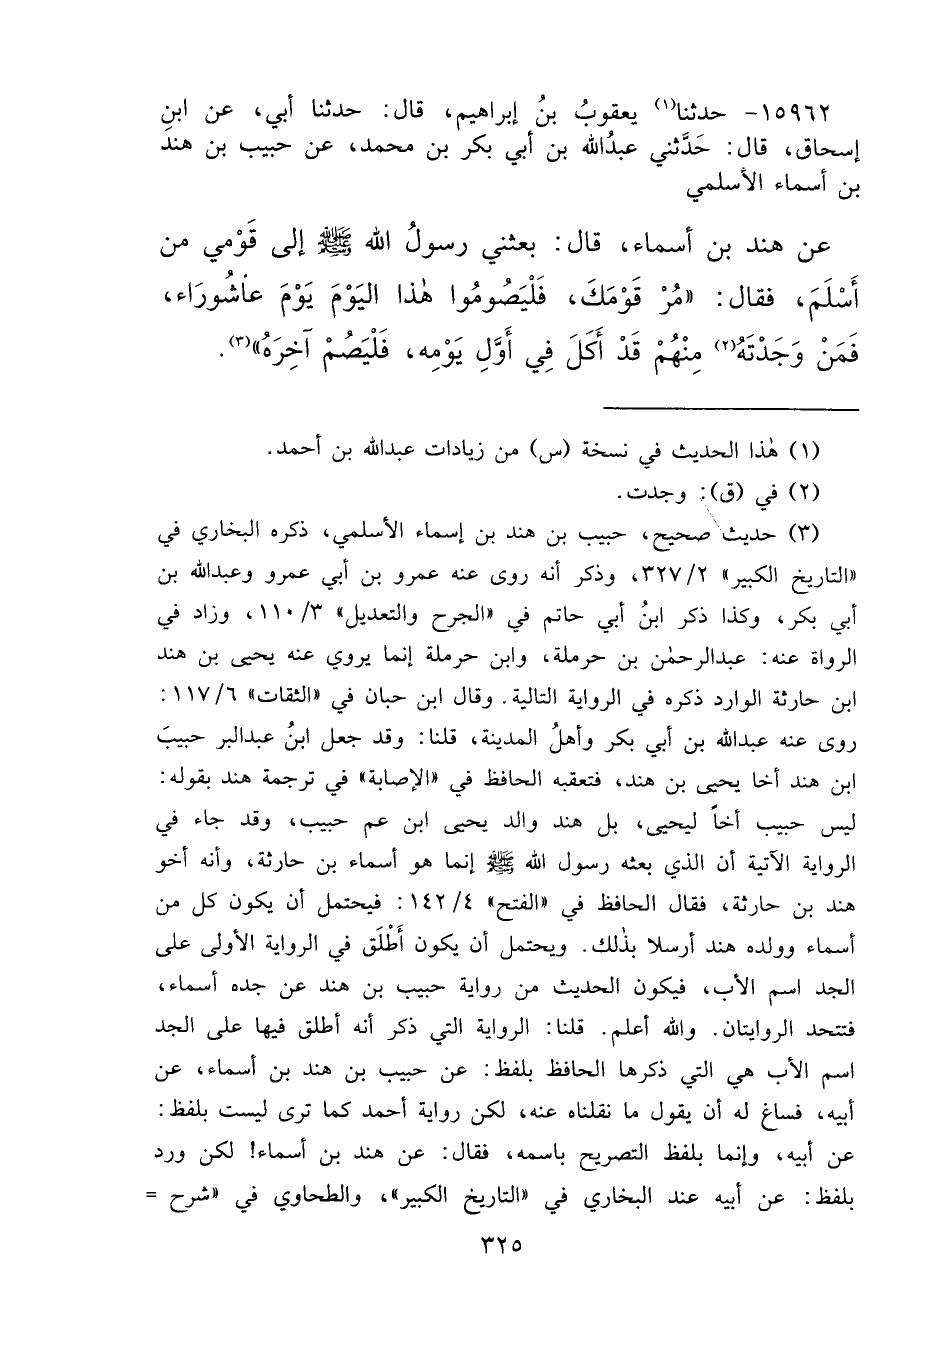 ١٥٩٦٢- حدثنا(١) يعقوبُ بنُ إبراهيم، قال: حدثنا أبي، عن ابنِ
إسحاق، قال: حَدَّثني عبدُالله بن أبي بكر بن محمد، عن حبيب بن هند
بن أسماء الأسلمي
عن هند بن أسماء، قال: بعثني رسولُ الله ﷺ إلى قَوْمي من
أَسْلَمَ، فقال: «مُرْ قَوْمَكَ، فَلْيَصُومُوا هٰذا اليَوْمَ يَوْمَ عاشُورَاء،
فَمَنْ وَجَدْتَهُ(٢) مِنْهُمْ قَدْ أَكَلَ فِي أَوَّلِ يَوْمِه، فَلْيَصُمْ آخِرَهُ»(٣).
(١) هٰذا الحديث في نسخة (س) من زيادات عبدالله بن أحمد.
(٢) في (ق): وجدت.
(٣) حديث صحيح، حبيب بن هند بن إسماء الأسلمي، ذكره البخاري في
«التاريخ الكبير» ٣٢٧/٢، وذكر أنه روى عنه عمرو بن أبي عمرو وعبدالله بن
أبي بكر، وكذا ذكر ابنُ أبي حاتم في «الجرح والتعديل» ١١٠/٣، وزاد في
الرواة عنه: عبدالرحمٰن بن حرملة، وابن حرملة إنما يروي عنه يحيى بن هند
ابن حارثة الوارد ذكره في الرواية التالية. وقال ابن حبان في «الثقات» ١١٧/٦:
روى عنه عبدالله بن أبي بكر وأهلُ المدينة، قلنا: وقد جعل ابنُ عبدالبر حبيبَ
ابن هند أخا يحيى بن هند، فتعقبه الحافظ في «الإصابة» في ترجمة هند بقوله:
ليس حبيب أخاً ليحيى، بل هند والد يحيى ابن عم حبيب، وقد جاء في
الرواية الآتية أن الذي بعثه رسول الله ﷺ إنما هو أسماء بن حارثة، وأنه أخو
هند بن حارثة، فقال الحافظ في «الفتح» ١٤٢/٤: فيحتمل أن يكون كل من
أسماء وولده هند أرسلا بذٰلك. ويحتمل أن يكون أَطْلَق في الرواية الأولى على
الجد اسم الأب، فيكون الحديث من رواية حبيب بن هند عن جده أسماء،
فتتحد الروايتان. والله أعلم. قلنا: الرواية التي ذكر أنه أطلق فيها على الجد
اسم الأب هي التي ذكرها الحافظ بلفظ: عن حبيب بن هند بن أسماء، عن
أبيه، فساغ له أن يقول ما نقلناه عنه، لكن رواية أحمد كما ترى ليست بلفظ:
عن أبيه، وإنما بلفظ التصريح باسمه، فقال: عن هند بن أسماء! لكن ورد
بلفظ: عن أبيه عند البخاري في «التاريخ الكبير»، والطحاوي في «شرح =
٣٢٥